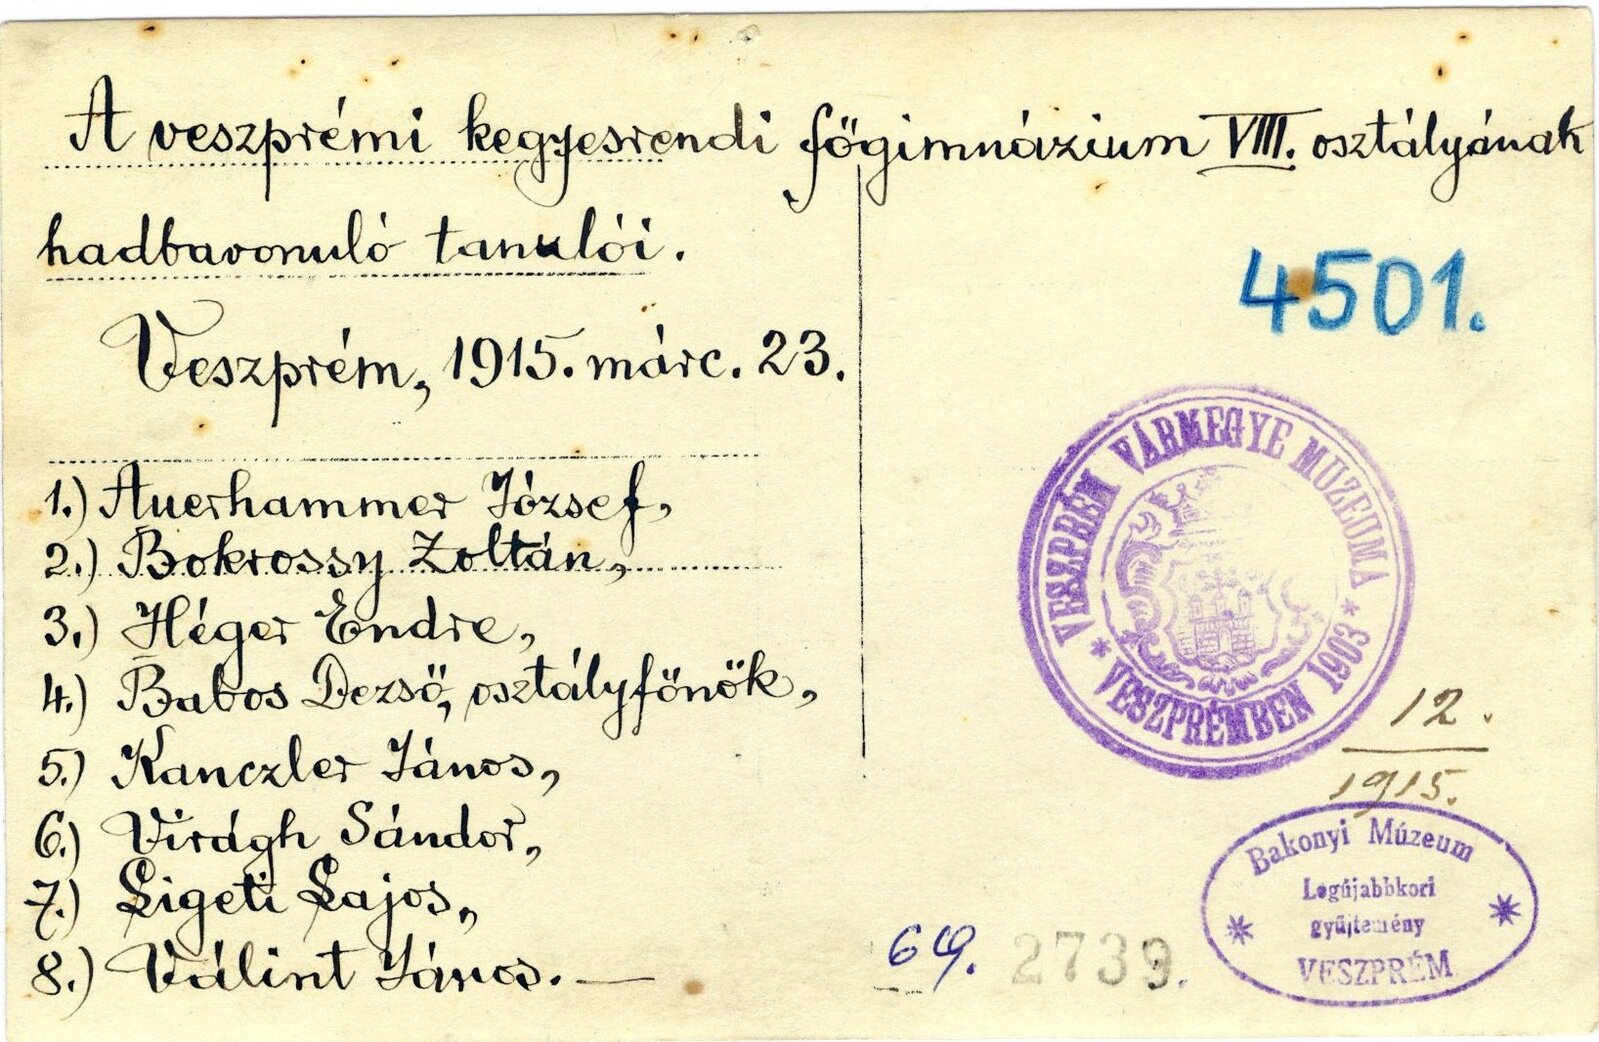 A veszprémi kegyesrendi főgimnázium VIII. osztályának
hadbavonuló tanulói.
Veszprém, 1915. márc. 23.
1.) Auerhammer József,
2.) Bokrossy Zoltán,
3.) Héger Endre,
4.) Babos Dezső, osztályfőnök,
5.) Kanczler János,
6.) Virágh Sándor,
7.) Ligeti Lajos,
8.) Válint János. —
4501.
* VESZPRÉM VÁRMEGYE MUZEUMA *
VESZPRÉMBEN 1903
12.
1915.
Bakonyi Múzeum
Legújabbkori
gyűjtemény
VESZPRÉM
69. 2739.